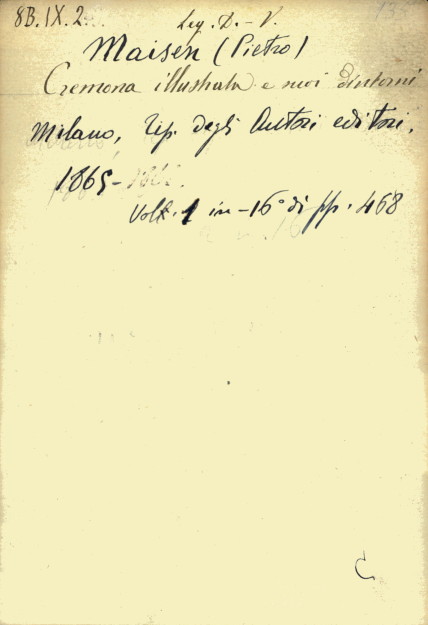 8B.IX.2. Leg. D.-V.
Maisen (Pietro)
Cremona illustrata e suoi dintorni
Milano, Tip. degli Autori editori,
1865-
Vol. 1 in-16° di pp. 468
C